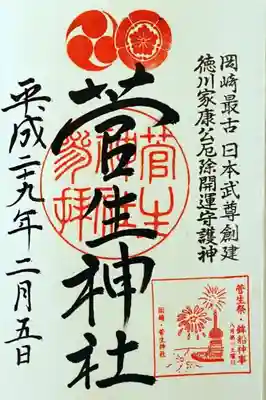 岡崎最古 日本武尊創建
徳川家康公厄除開運守護神
菅生神社
菅生
參拝
平成二十九年二月五日
菅生祭・鉾船神事
八月第一土曜日
岡崎・菅生神社